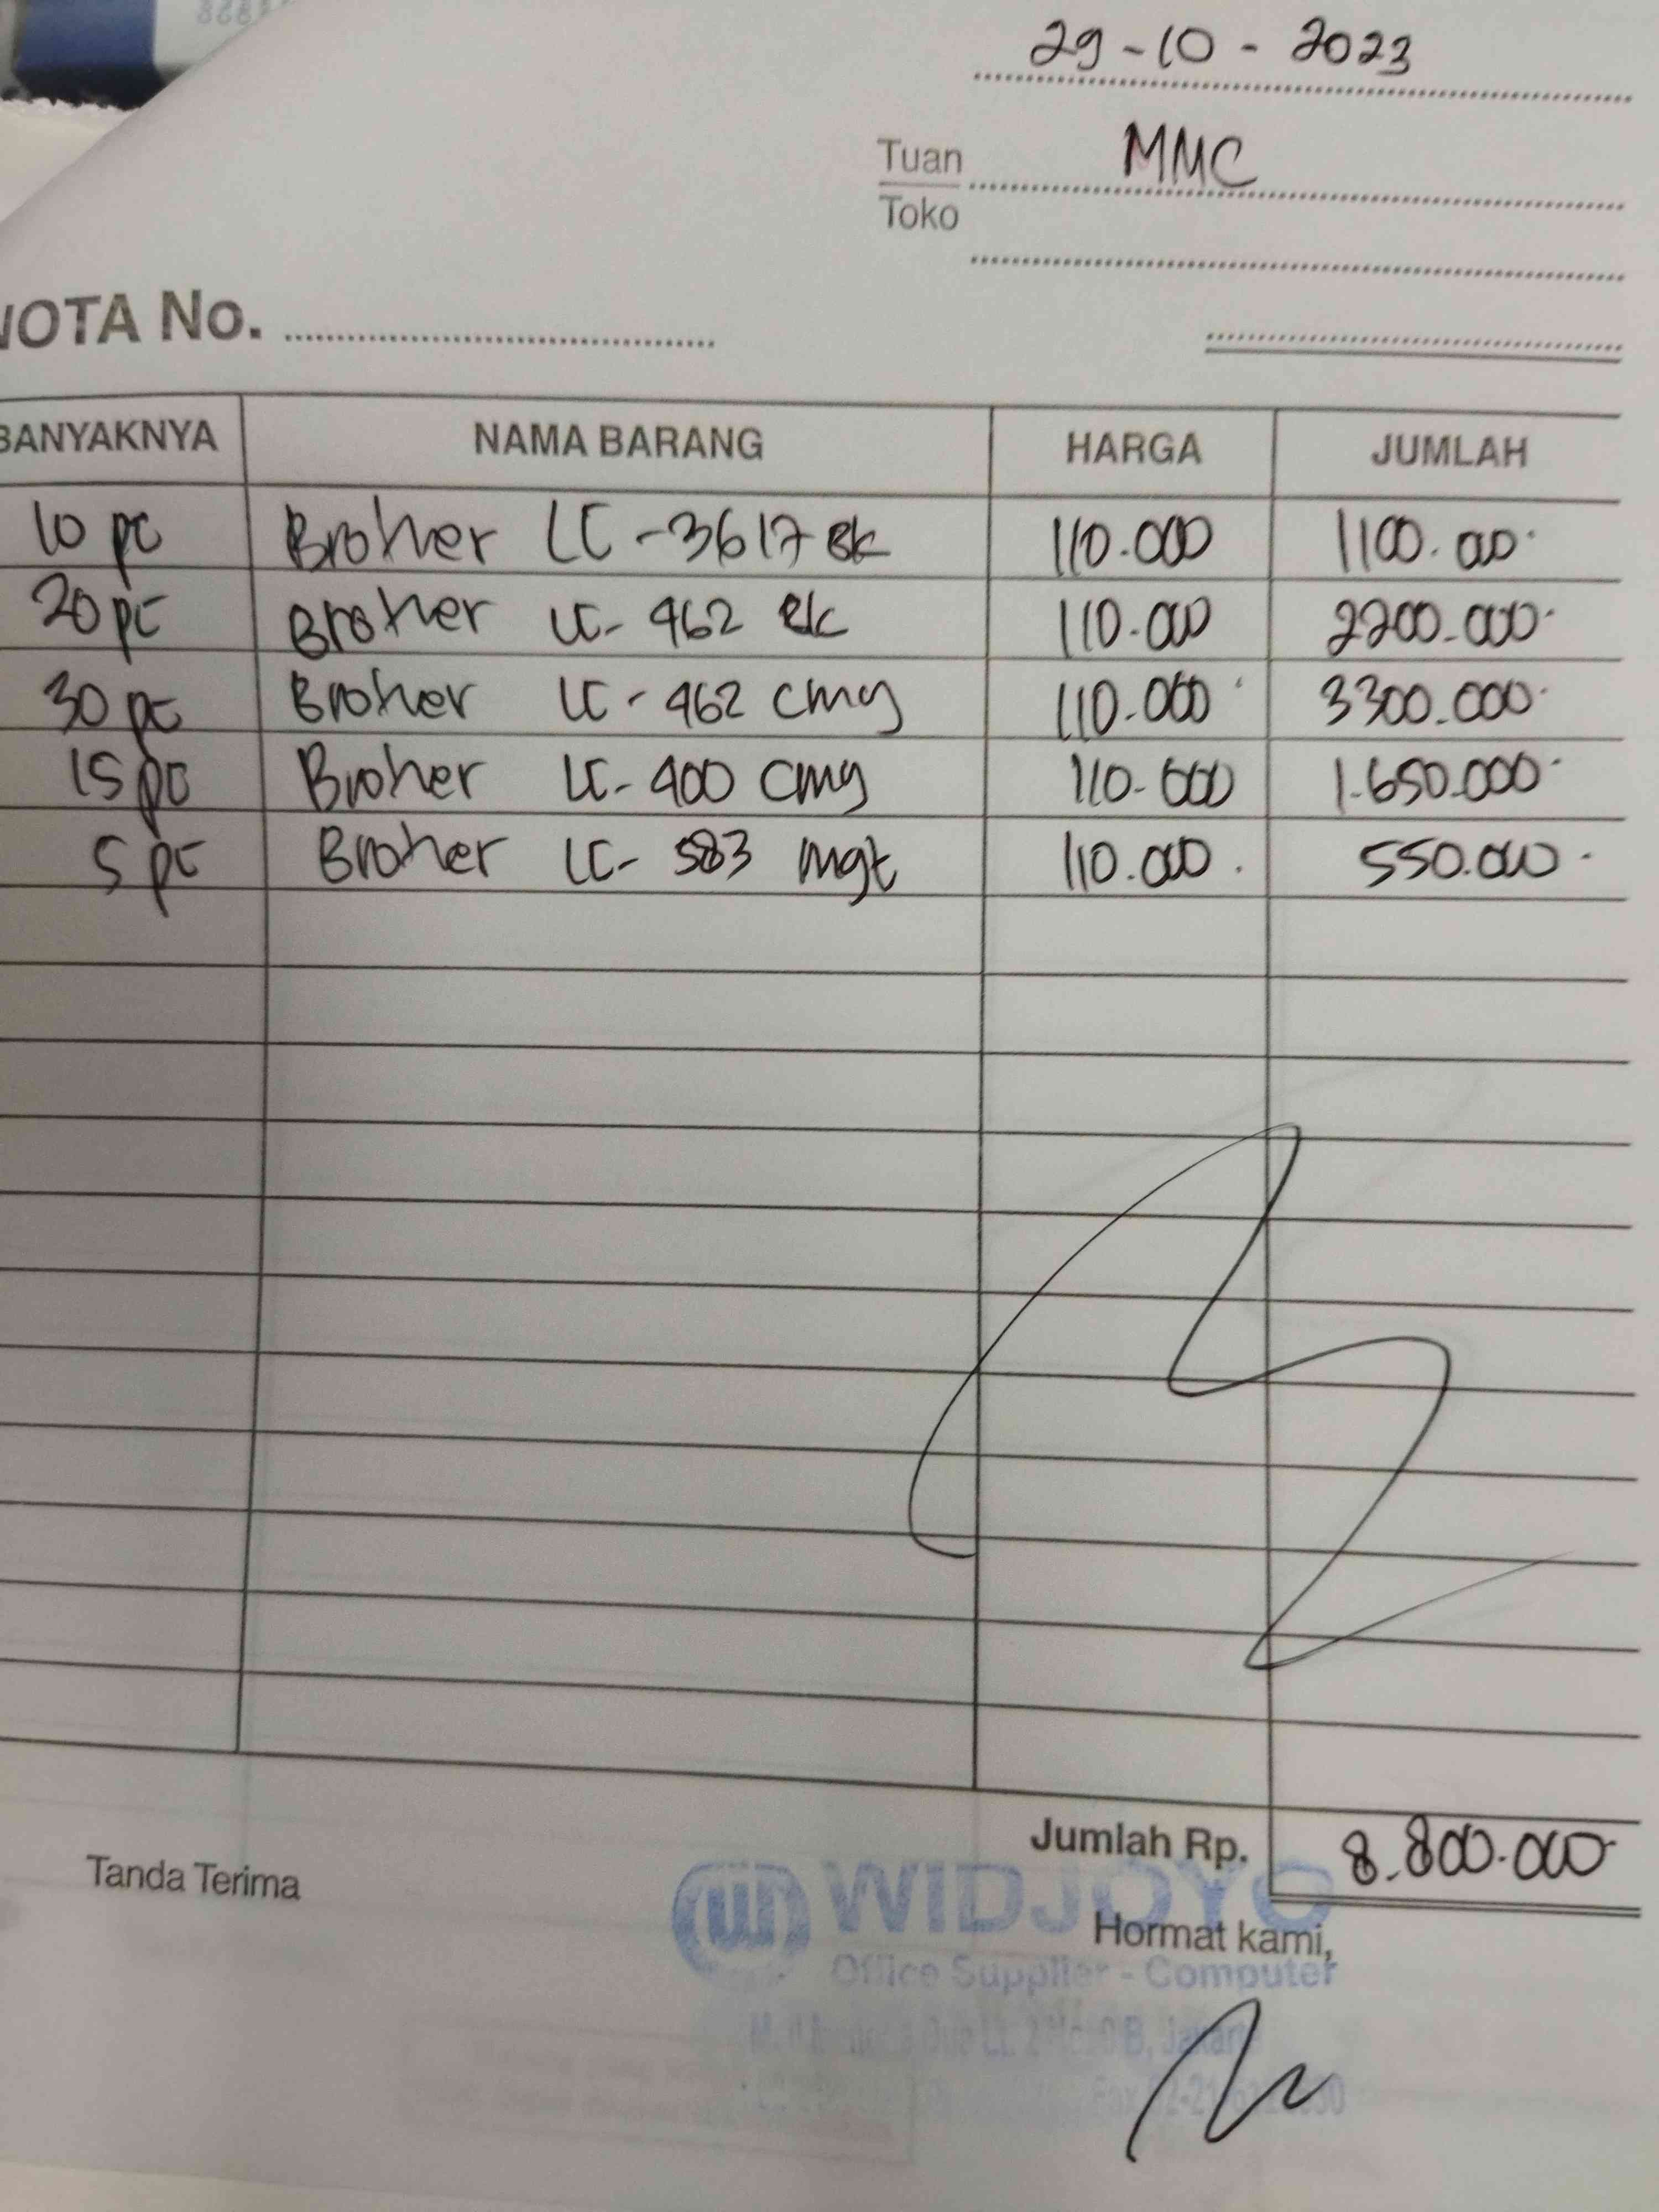 29-10-2023
Tuan MMC
Toko
NOTA No.
BANYAKNYA NAMA BARANG HARGA JUMLAH
10 pc Broher LC-3617 BK 110.000 1100.000
20 pc Broher LC-462 BK 110.000 2200.000
30 pc Broher LC-462 cmy 110.000 3300.000
15 pc Broher LC-400 cmy 110.000 1.650.000
5 pc Broher LC-583 mgt 110.000 550.000
Jumlah Rp. 8.800.000
Tanda Terima
WIDJOYO
Hormat kami,
Office Supplier - Computer